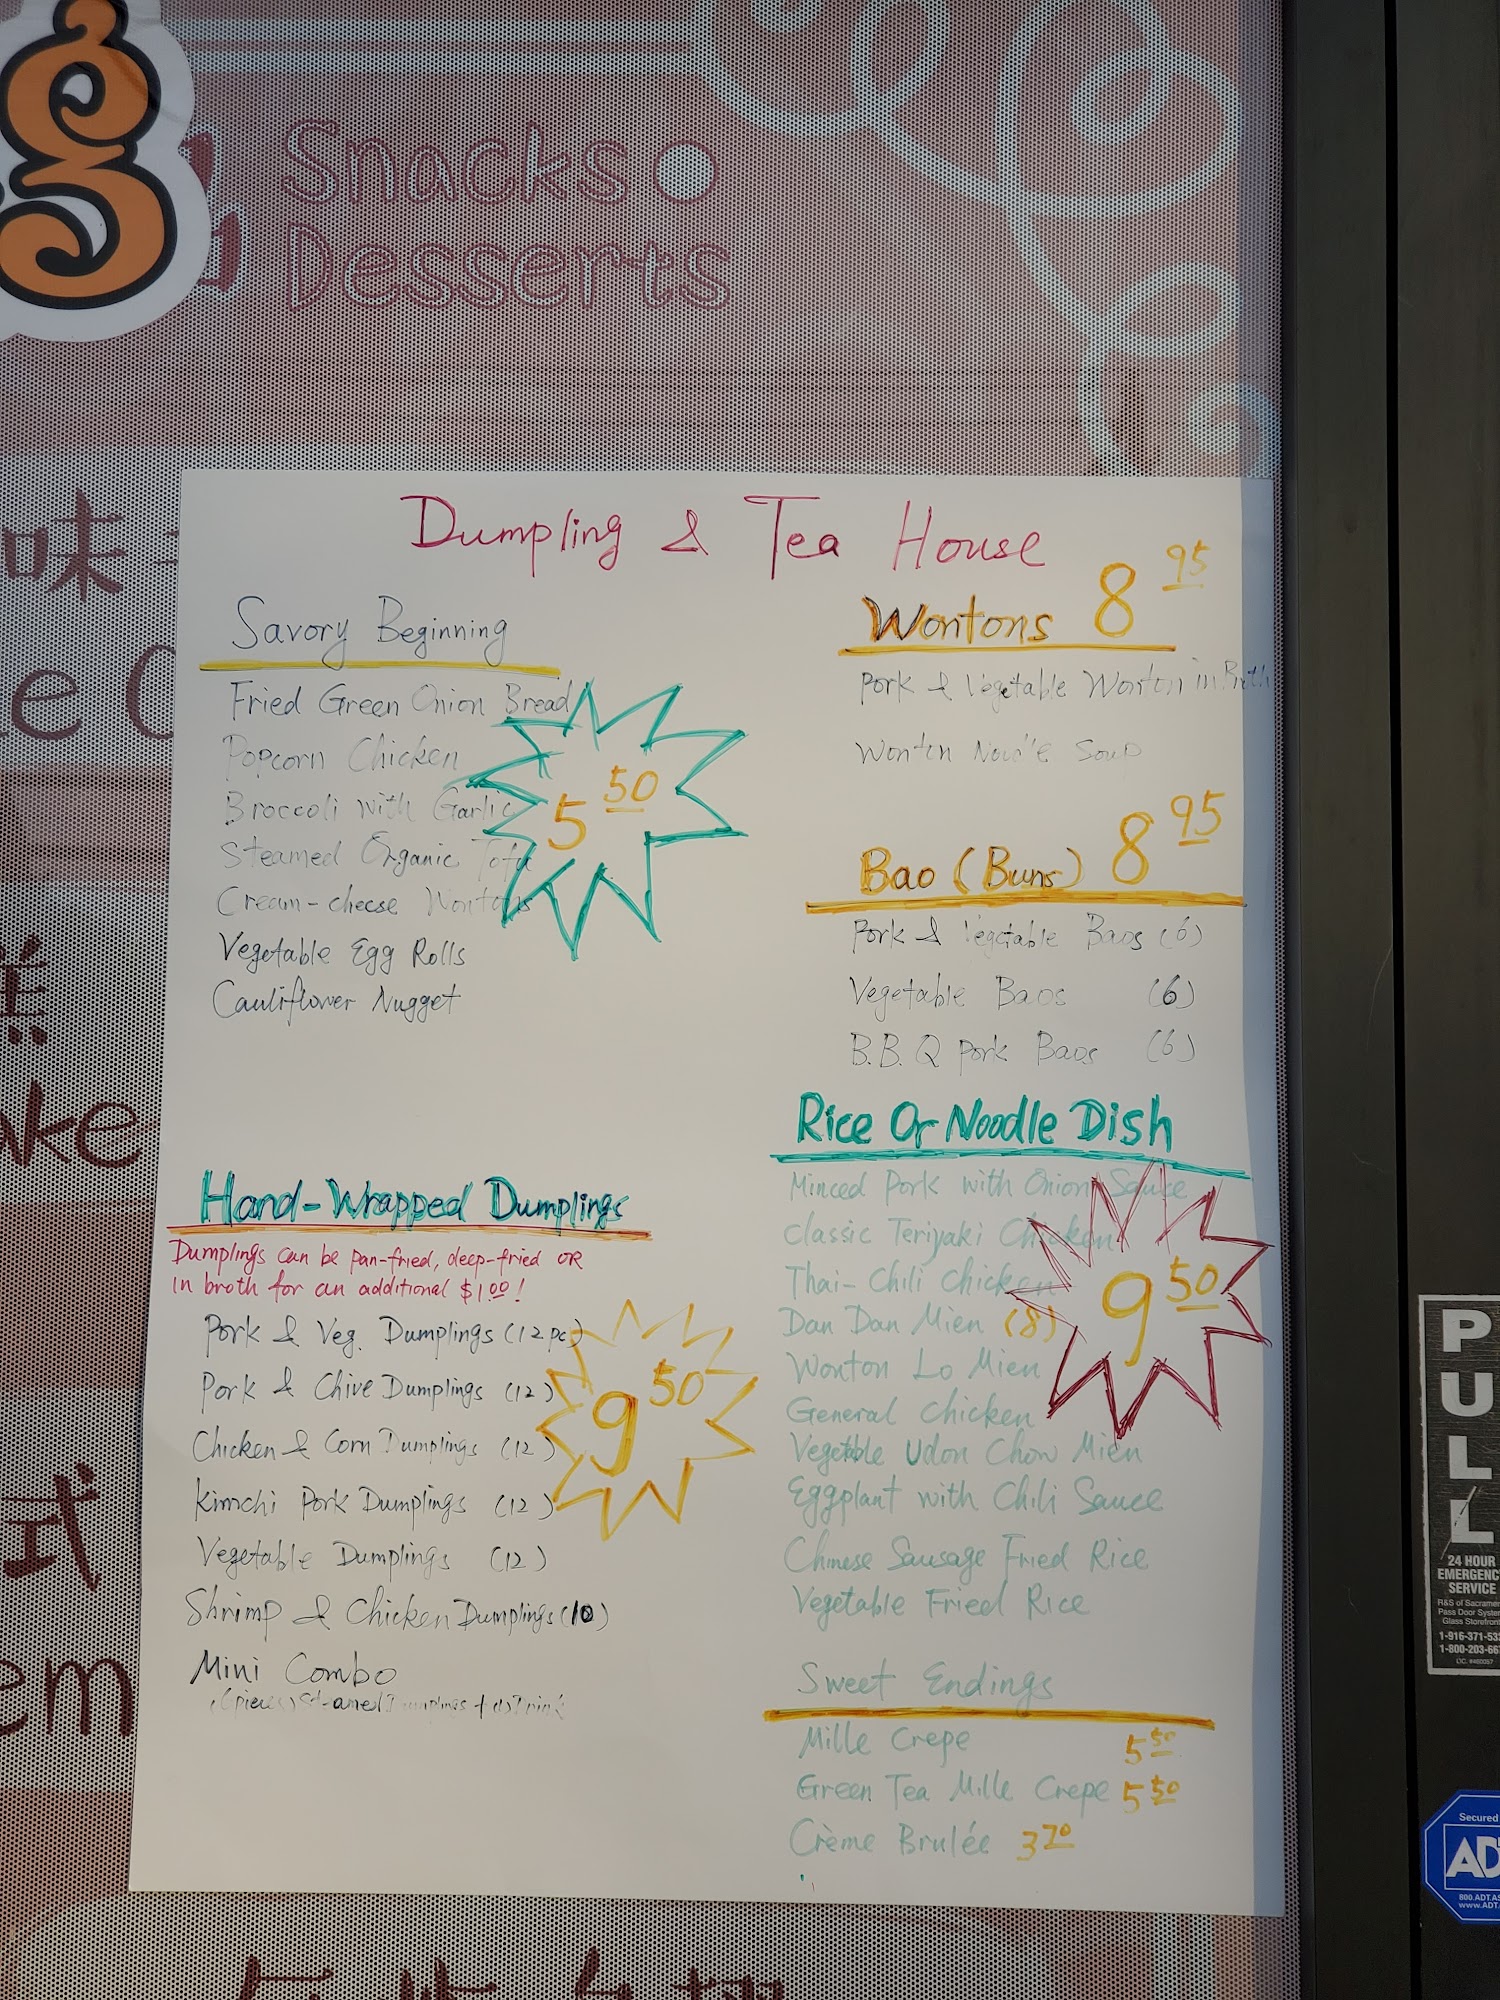 g
Snacks
Desserts
味
Dumpling & Tea House
Savory Beginning
Fried Green Onion Bread
Popcorn Chicken
Broccoli with Garlic
Steamed Organic Tofu
Cream-cheese Wontons
Vegetable Egg Rolls
Cauliflower Nugget
5 50
Hand-Wrapped Dumplings
Dumplings can be pan-fried, deep-fried OR
in broth for an additional $1.00!
Pork & Veg. Dumplings (12 pc)
Pork & Chive Dumplings (12)
Chicken & Corn Dumplings (12)
Kimchi Pork Dumplings (12)
Vegetable Dumplings (12)
Shrimp & Chicken Dumplings (10)
9 50
Mini Combo
Wontons 8 95
Pork & Vegetable Wonton in Broth
Wonton Noodle Soup
Bao (Buns) 8 95
Pork & Vegetable Baos (6)
Vegetable Baos (6)
B.B.Q Pork Baos (6)
Rice Or Noodle Dish
Minced Pork with Onion Sauce
Classic Teriyaki Chicken
Thai-Chili Chicken
Dan Dan Mien (8)
Wonton Lo Mien
General Chicken
Vegetable Udon Chow Mien
Eggplant with Chili Sauce
Chinese Sausage Fried Rice
Vegetable Fried Rice
9 50
Sweet Endings
Mille Crepe 5 50
Green Tea Mille Crepe 5 50
Crème Brulée 3 70
式
PULL
24 HOUR
EMERGENCY
SERVICE
Secured
ADT